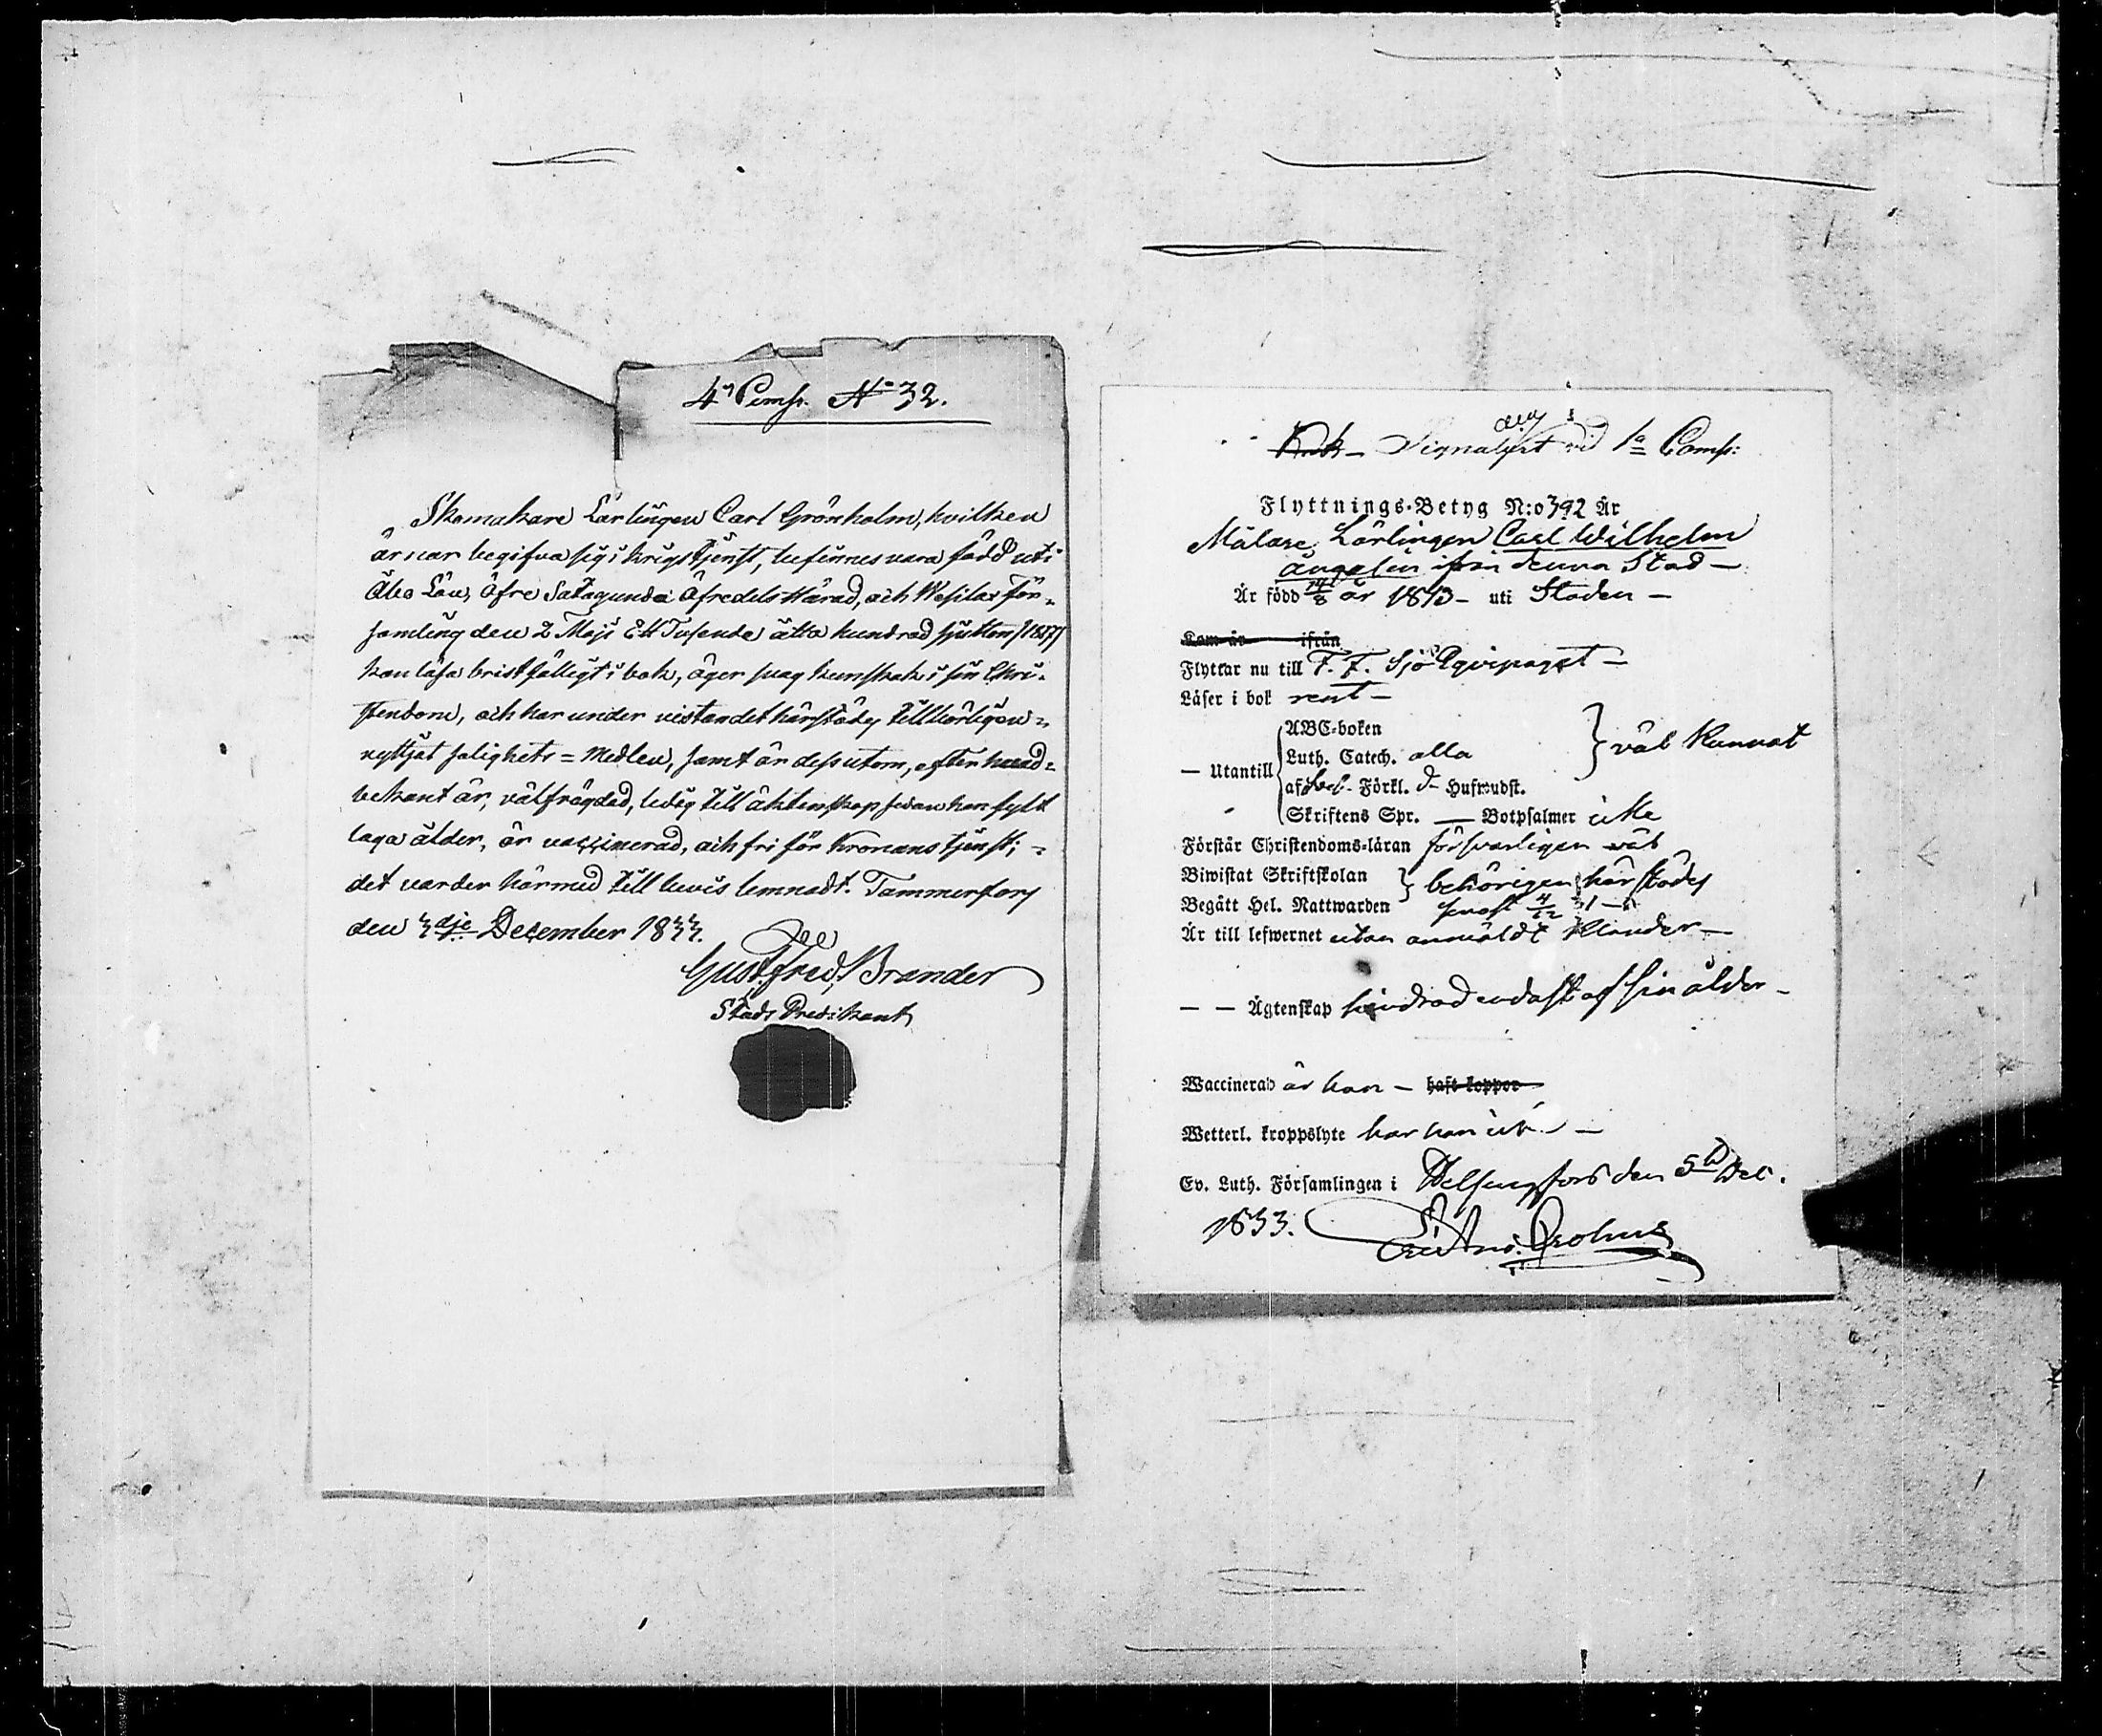 4de Comp. No 32.
Skomakare Lärlingen Carl Grönholm, hvilken
ärnar begifva sig i krigstjenst, befinnes vara född uti
Åbo Län, Öfre Satagunda Öfredels Härad, och Wesilax För-
samling den 2 Maji Ett Tusende åtta hundrad sjutton /1817/
kan läsa bristfälligt i bok, äger svag kunskab i sin Chri-
stendom, och har under vistandet härstädes tillbörligen
nyttjat salighets = Medlen, samt är dessutom, efter hvad
bekant är, välfrägdad, ledig till äktenskap sedan han fylt
laga ålder, är vaccinerad, och fri för Kronans tjenst; =
det varder härmed till bevis lemnadt. Tammerfors
den 3dje December 1833.
Gust. Fred. Brander
Stads Predikant
Signalist vid 1a Comp:
Flyttnings-Betyg N:o 392 År
Målare Lärlingen Carl Wilhelm
Ängelin ifrån denna Stad —
Är född 14/8 år 1813 — uti Staden —
Kom år ifrån
Flyttar nu till F. F. Sjö Equipaget —
Läser i bok rent —
— Utantill ABC-boken
Luth. Catech. alla } väl kunnat
af Förkl. d— Hufwudst.
Skriftens Spr. — Botpsalmer icke
Förstår Christendoms-läran försvarligen väl
Biwistat Skriftskolan } behörigen härstädes
Begått Hel. Nattwarden senast 4/12 31 —
Är till lefwernet utan anmäldt klander —
— — Ägtenskap hindrad endast af sin ålder —
Waccinerad är han — haft koppor
Wetterl. kroppslyte har han ick —
Ev. Luth. Församlingen i Helsingfors den 5te Dec.
1833.